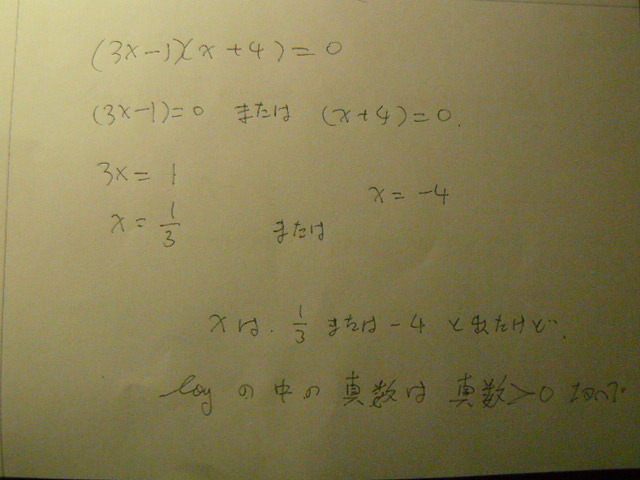 (3x-1)(x+4)=0
(3x-1)=0 または (x+4)=0.
3x=1
x=-4
x=1/3 または
xは. 1/3 または-4 と出たけど.
logの中の真数は 真数>0 なので